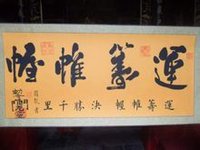 運籌帷幄
運籌帷幄 決勝千里